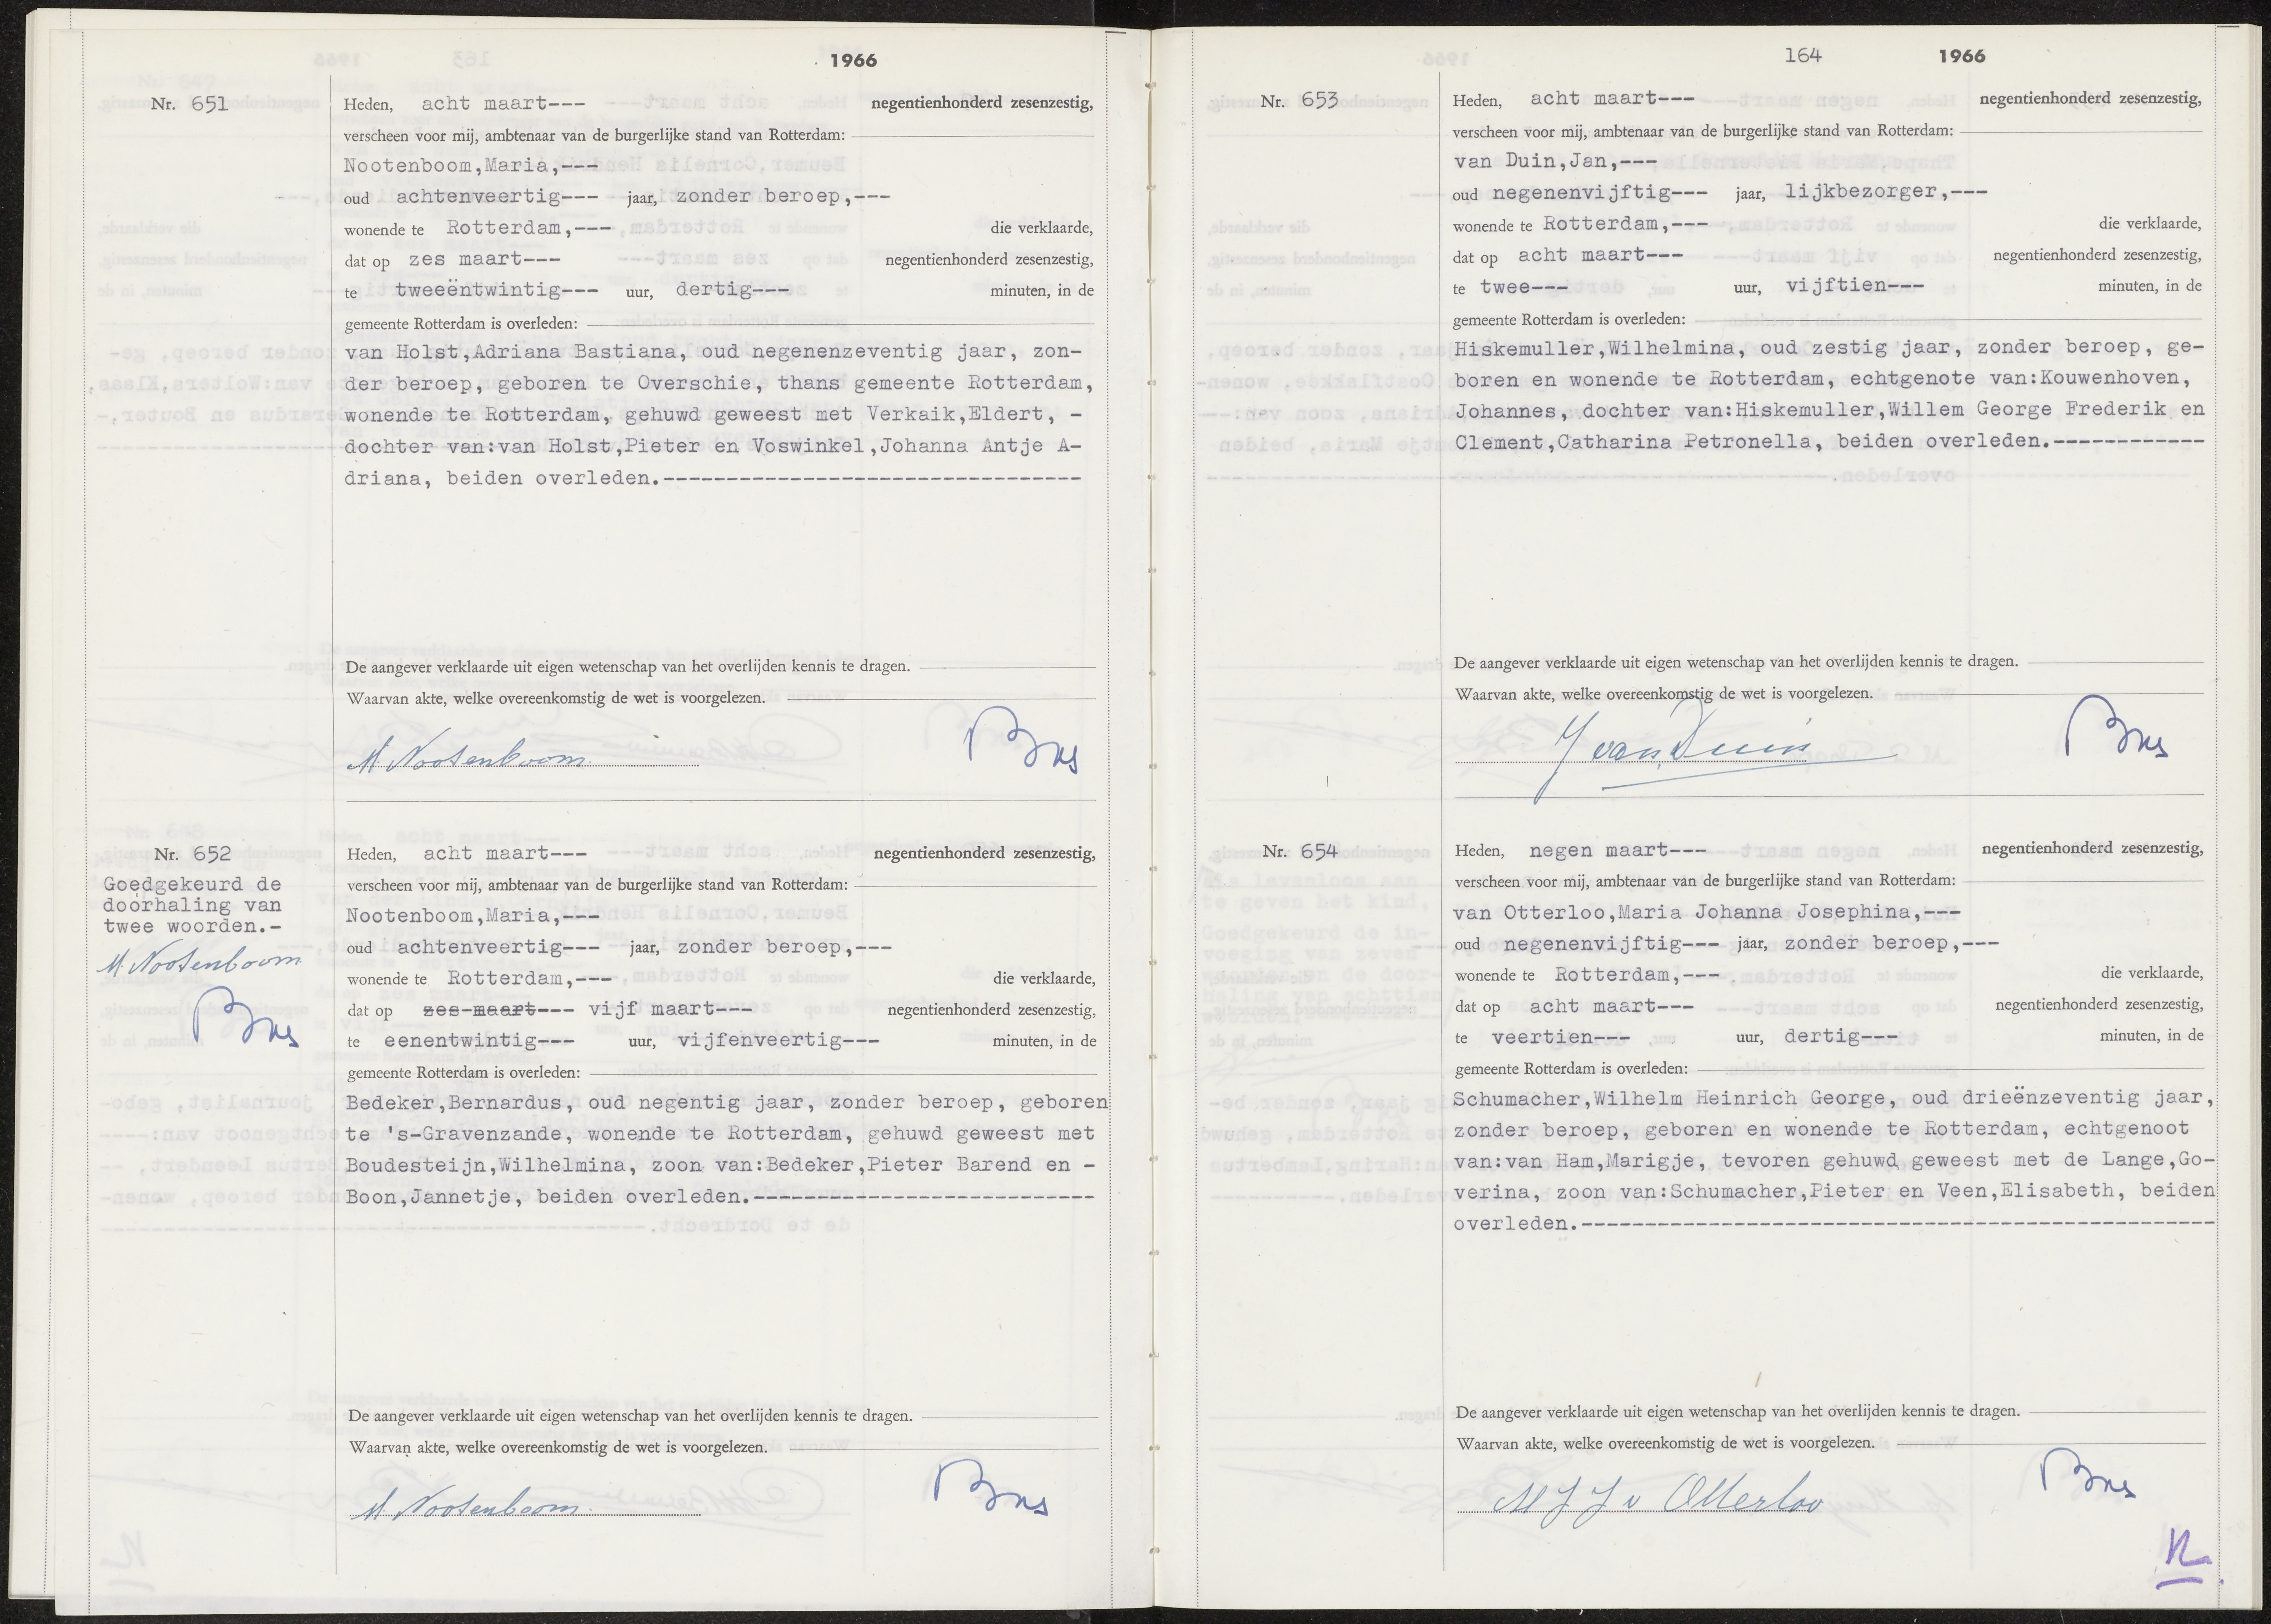 1966
Nr. 651
Heden, acht maart--- negentienhonderd zesenzestig,
verscheen voor mij, ambtenaar van de burgerlijke stand van Rotterdam:
Nootenboom,Maria,---
oud achtenveertig--- jaar, zonder beroep,---
wonende te Rotterdam,--- die verklaarde,
dat op zes maart--- negentienhonderd zesenzestig,
te tweeëntwintig--- uur, dertig--- minuten, in de
gemeente Rotterdam is overleden:
van Holst,Adriana Bastiana, oud negenenzeventig jaar, zon-
der beroep, geboren te Overschie, thans gemeente Rotterdam,
wonende te Rotterdam, gehuwd geweest met Verkaik,Eldert, -
dochter van:van Holst,Pieter en Voswinkel,Johanna Antje A-
driana, beiden overleden.---------------------------------
De aangever verklaarde uit eigen wetenschap van het overlijden kennis te dragen.
Waarvan akte, welke overeenkomstig de wet is voorgelezen.
M. Nootenboom
Nr. 652
Goedgekeurd de
doorhaling van
twee woorden.-
M. Nootenboom
Heden, acht maart--- negentienhonderd zesenzestig,
verscheen voor mij, ambtenaar van de burgerlijke stand van Rotterdam:
Nootenboom,Maria,---
oud achtenveertig--- jaar, zonder beroep,---
wonende te Rotterdam,--- die verklaarde,
dat op zes maart--- vijf maart--- negentienhonderd zesenzestig,
te eenentwintig--- uur, vijfenveertig--- minuten, in de
gemeente Rotterdam is overleden:
Bedeker,Bernardus, oud negentig jaar, zonder beroep, geboren
te 's-Gravenzande, wonende te Rotterdam, gehuwd geweest met
Boudesteijn,Wilhelmina, zoon van:Bedeker,Pieter Barend en -
Boon,Jannetje, beiden overleden.---------------------------
De aangever verklaarde uit eigen wetenschap van het overlijden kennis te dragen.
Waarvan akte, welke overeenkomstig de wet is voorgelezen.
M. Nootenboom.
164 1966
Nr. 653
Heden, acht maart--- negentienhonderd zesenzestig,
verscheen voor mij, ambtenaar van de burgerlijke stand van Rotterdam:
van Duin,Jan,---
oud negenenvijftig--- jaar, lijkbezorger,---
wonende te Rotterdam,--- die verklaarde,
dat op acht maart--- negentienhonderd zesenzestig,
te twee--- uur, vijftien--- minuten, in de
gemeente Rotterdam is overleden:
Hiskemuller,Wilhelmina, oud zestig jaar, zonder beroep, ge-
boren en wonende te Rotterdam, echtgenote van:Kouwenhoven,
Johannes, dochter van:Hiskemuller,Willem George Frederik en
Clement,Catharina Petronella, beiden overleden.------------
De aangever verklaarde uit eigen wetenschap van het overlijden kennis te dragen.
Waarvan akte, welke overeenkomstig de wet is voorgelezen.
J van Duin
Nr. 654
Heden, negen maart--- negentienhonderd zesenzestig,
verscheen voor mij, ambtenaar van de burgerlijke stand van Rotterdam:
van Otterloo,Maria Johanna Josephina,---
oud negenenvijftig--- jaar, zonder beroep,---
wonende te Rotterdam,--- die verklaarde,
dat op acht maart--- negentienhonderd zesenzestig,
te veertien--- uur, dertig--- minuten, in de
gemeente Rotterdam is overleden:
Schumacher,Wilhelm Heinrich George, oud drieënzeventig jaar,
zonder beroep, geboren en wonende te Rotterdam, echtgenoot
van:van Ham,Marigje, tevoren gehuwd geweest met de Lange,Go-
verina, zoon van:Schumacher,Pieter en Veen,Elisabeth, beiden
overleden.--------------------------------------------------
De aangever verklaarde uit eigen wetenschap van het overlijden kennis te dragen.
Waarvan akte, welke overeenkomstig de wet is voorgelezen.
M J J v Otterloo